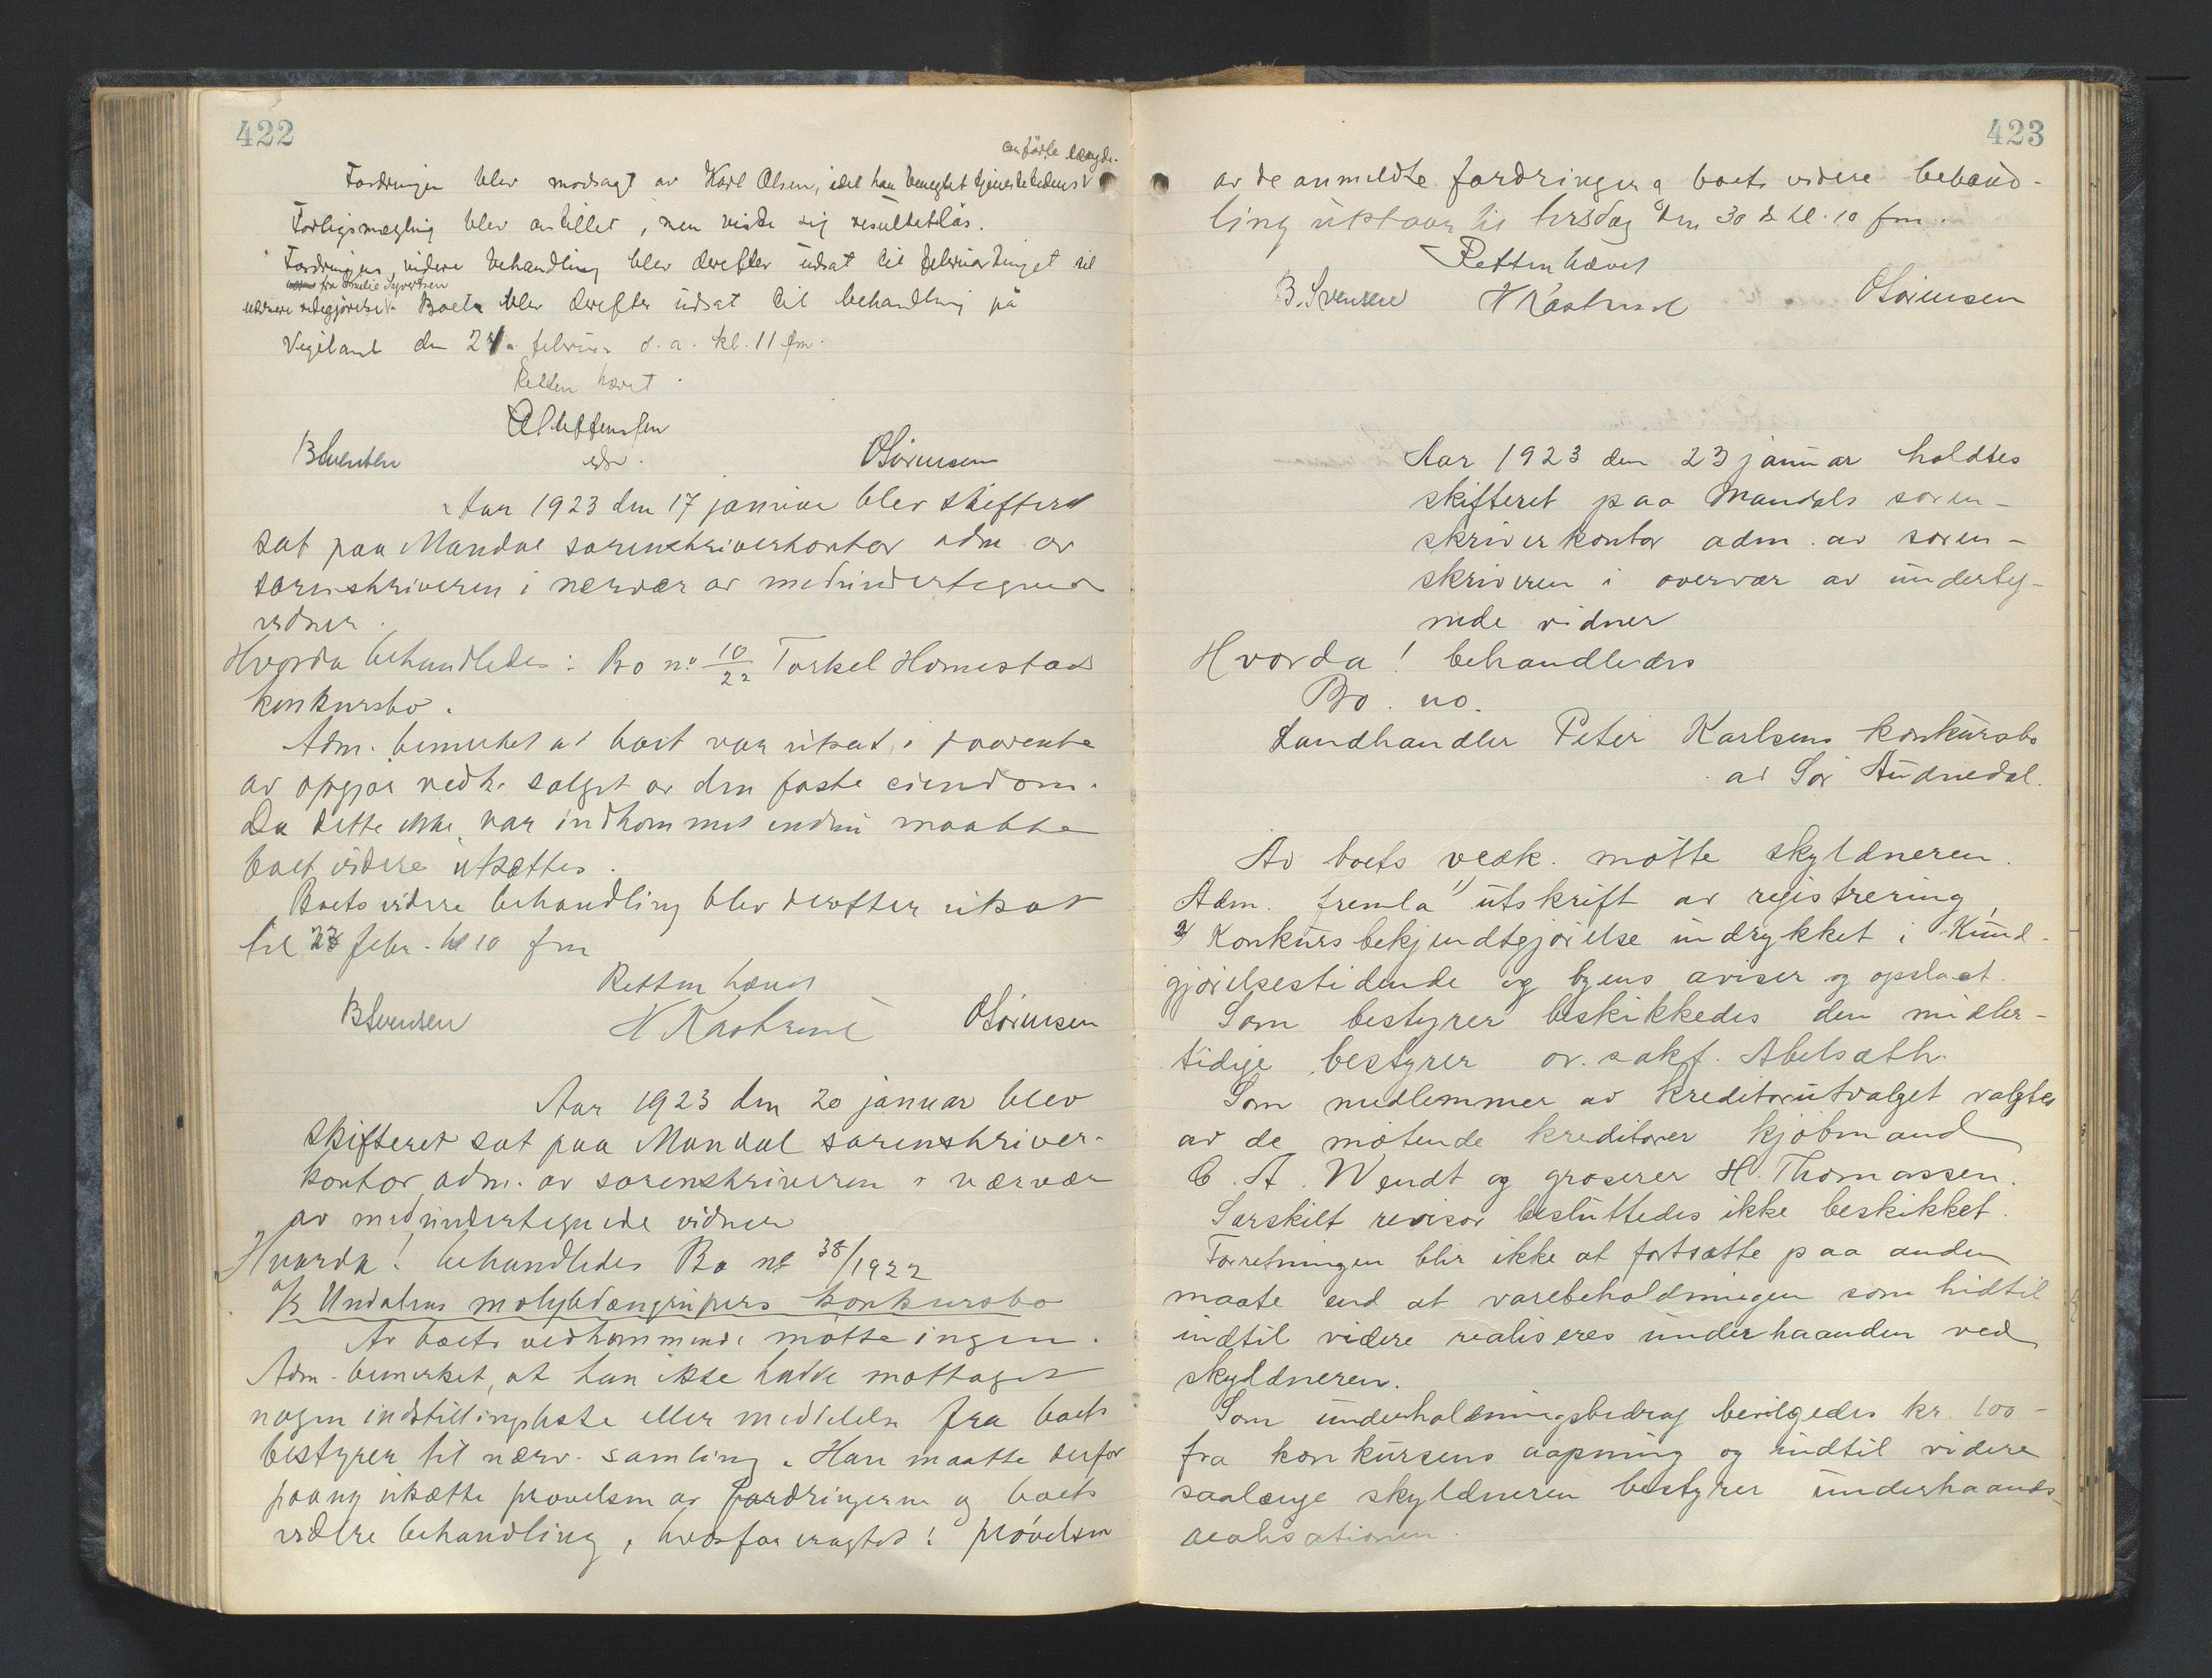 422
anførte længde.
Fordringen blev modsagt av Karl Olsen, idet han benegtet tjenestetidens
Forligsmægling blev anstillet, men viste sig resultatløs.
Fordringens videre behandling blev derefter udsat til februartinget til
fra Emilie Syvertsen
nærmere redegjørelse. Boet blev derefter udsat til behandling på
Vigeland den 21. februar d. a. kl. 11 fm.
Retten hævet.
BSvensen OSørensen
Aar 1923 den 17 januar blev skifteret
sat paa Mandal sorenskriverkontor adm av
sorenskriveren i nærvær av medundertegnede
vidner.
Hvorda behandledes: Bo no 10/22 Torkel Homestad
konkursbo.
Adm. bemerket at boet var utsat i paavente
av opgjør vedk. salget av den faste eiendom.
Da dette ikke var indkommet endnu maatte
boet videre utsættes.
Boets videre behandling blev derefter utsat
til 23 febr. kl 10 fm
Retten hævet
BSvensen H Kastrud OSørensen
Aar 1923 den 20 januar blev
skifteret sat paa Mandal sorenskriver-
kontor adm. av sorenskriveren i nærvær
av medundertegnede vidner
Hvorda! behandledes Bo no 38/1922
A/S Undalens molybdængrubers konkursbo
Av boets vedkommende møtte ingen.
Adm. bemerket, at han ikke hadde mottaget
nogen indstillingsliste eller meddelelse fra boets
bestyrer til nærv. samling. Han maatte derfor
paany utsætte prøvelsen av fordringerne og boets
videre behandling, hvorfor eragtet: prøvelsen
423
av de anmeldte fordringer og boets videre behand-
ling utstaar til tirsdag den 30 ds kl. 10 fm.
Retten hævet
B. Svensen H Kastrud OSørensen
Aar 1923 den 23 januar holdtes
skifteret paa Mandals soren-
skriverkontor adm. av soren-
skriveren i overvær av underteg-
nede vidner
Hvorda! behandledes
Bo. no.
Landhandler Peter Karlsens konkursbo
av Sør Audnedal.
Av boets vedk. møtte skyldneren.
Adm. fremla 1) utskrift av registrering,
2) Konkursbekjendtgjørelse indrykket i Kund-
gjørelsestidende og byens aviser og opslaat.
Som bestyrer beskikkedes den midler-
tidige bestyrer o.r. sakf. Abelsæth.
Som medlemmer av kreditorutvalget valgtes
av de møtende kreditorer kjøbmand
C. A. Wendt og groserer H. Thomassen.
Særskilt revisor besluttedes ikke beskikket.
Forretningen blir ikke at fortsætte paa anden
maate end at varebeholdningen som hidtil
indtil videre realiseres underhaanden ved
skyldneren.
Som underholdningsbidrag bevilgedes kr. 100 -
fra konkursens aapning og indtil videre
saalænge skyldneren bestyrer underhaands-
realisationen.